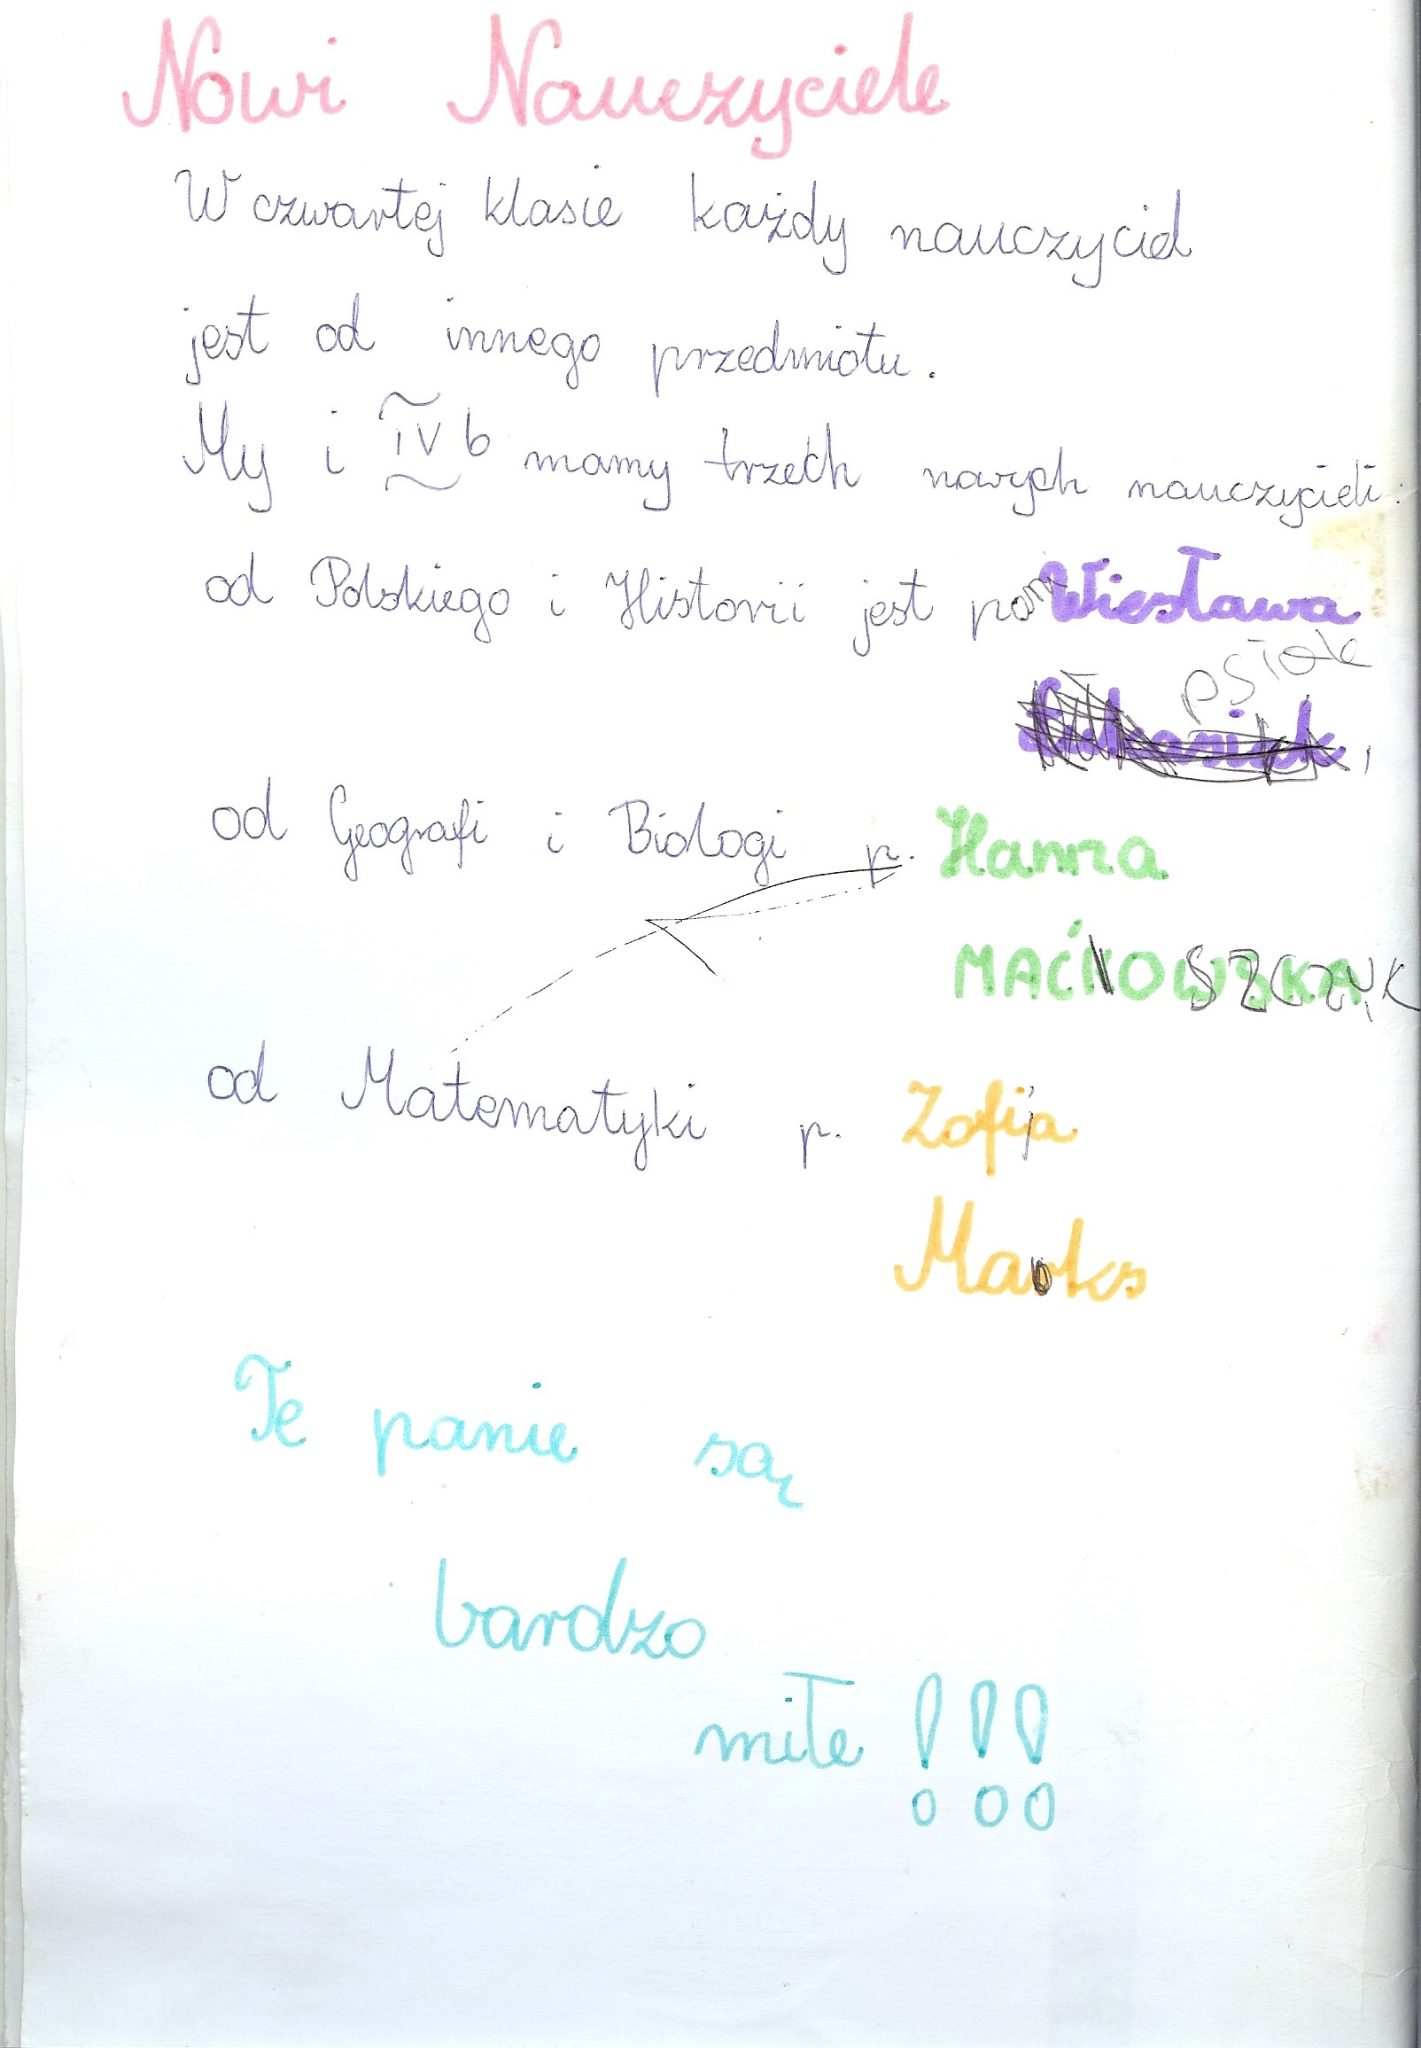 Nowi Nauczyciele
W czwartej klasie każdy nauczyciel
jest od innego przedmiotu.
My i IV b mamy trzech nowych nauczycieli:
od Polskiego i Historii jest pani Wiesława
psiak
od Geografi i Biologi p. Hanna
MAĆKOWSKA
od Matematyki p. Zofija
Te panie są
bardzo
miłe !!!